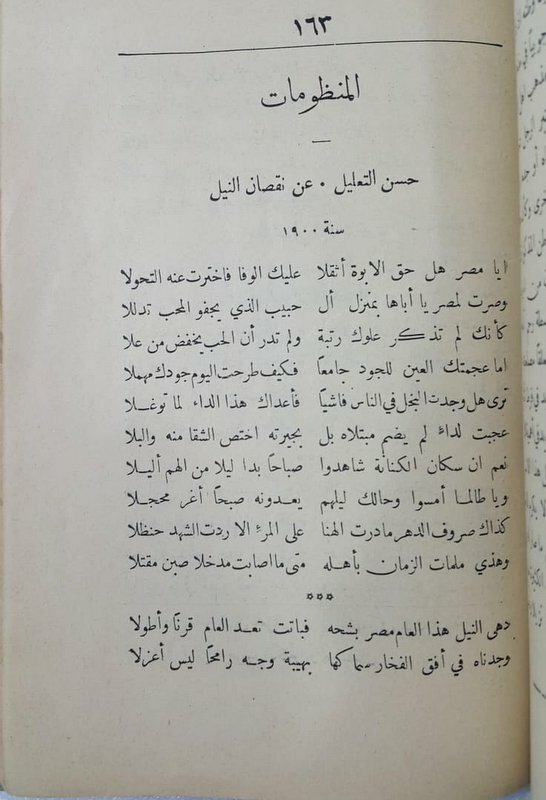 ١٦٣
المنظومات
حسن التعليل . عن نقصان النيل
سنة ١٩٠٠
ايا مصر هل حق الابوة أثقلا عليك الوفا فاخترت عنه التحولا
وصرت لمصر يا أباها بمنزل أل حبيب الذي يجفو المحب تدللا
كأنك لم تذكر علوك رتبة ولم تدر أن الحب يخفض من علا
اما عجمتك العين للجود جامعاً فكيف طرحت اليوم جودك مهملا
ترى هل وجدت البخل في الناس فاشياً فأعداك هذا الداء لما توغلا
عجبت لداءٍ لم يضم مبتلاه بل بجيرته اختص الشقا منه والبلا
نعم ان سكان الكنانة شاهدوا صباحاً بدا ليلا من الهم أليلا
ويا طالما أمسوا وحالك ليلهم يعدونه صبحاً أغر محجلا
كذاك صروف الدهر مادرت الهنا على المرءِ الا ردت الشهد حنظلا
وهذي ملمات الزمان بأهله متى ما اصابت مدخلا صبن مقتلا
***
دهى النيل هذا العام مصر بشحه فباتت تعد العام قرنًا وأطولا
وجدناه في أفق الفخار سماكها بهيبة وجه رامحًا ليس أعزلا